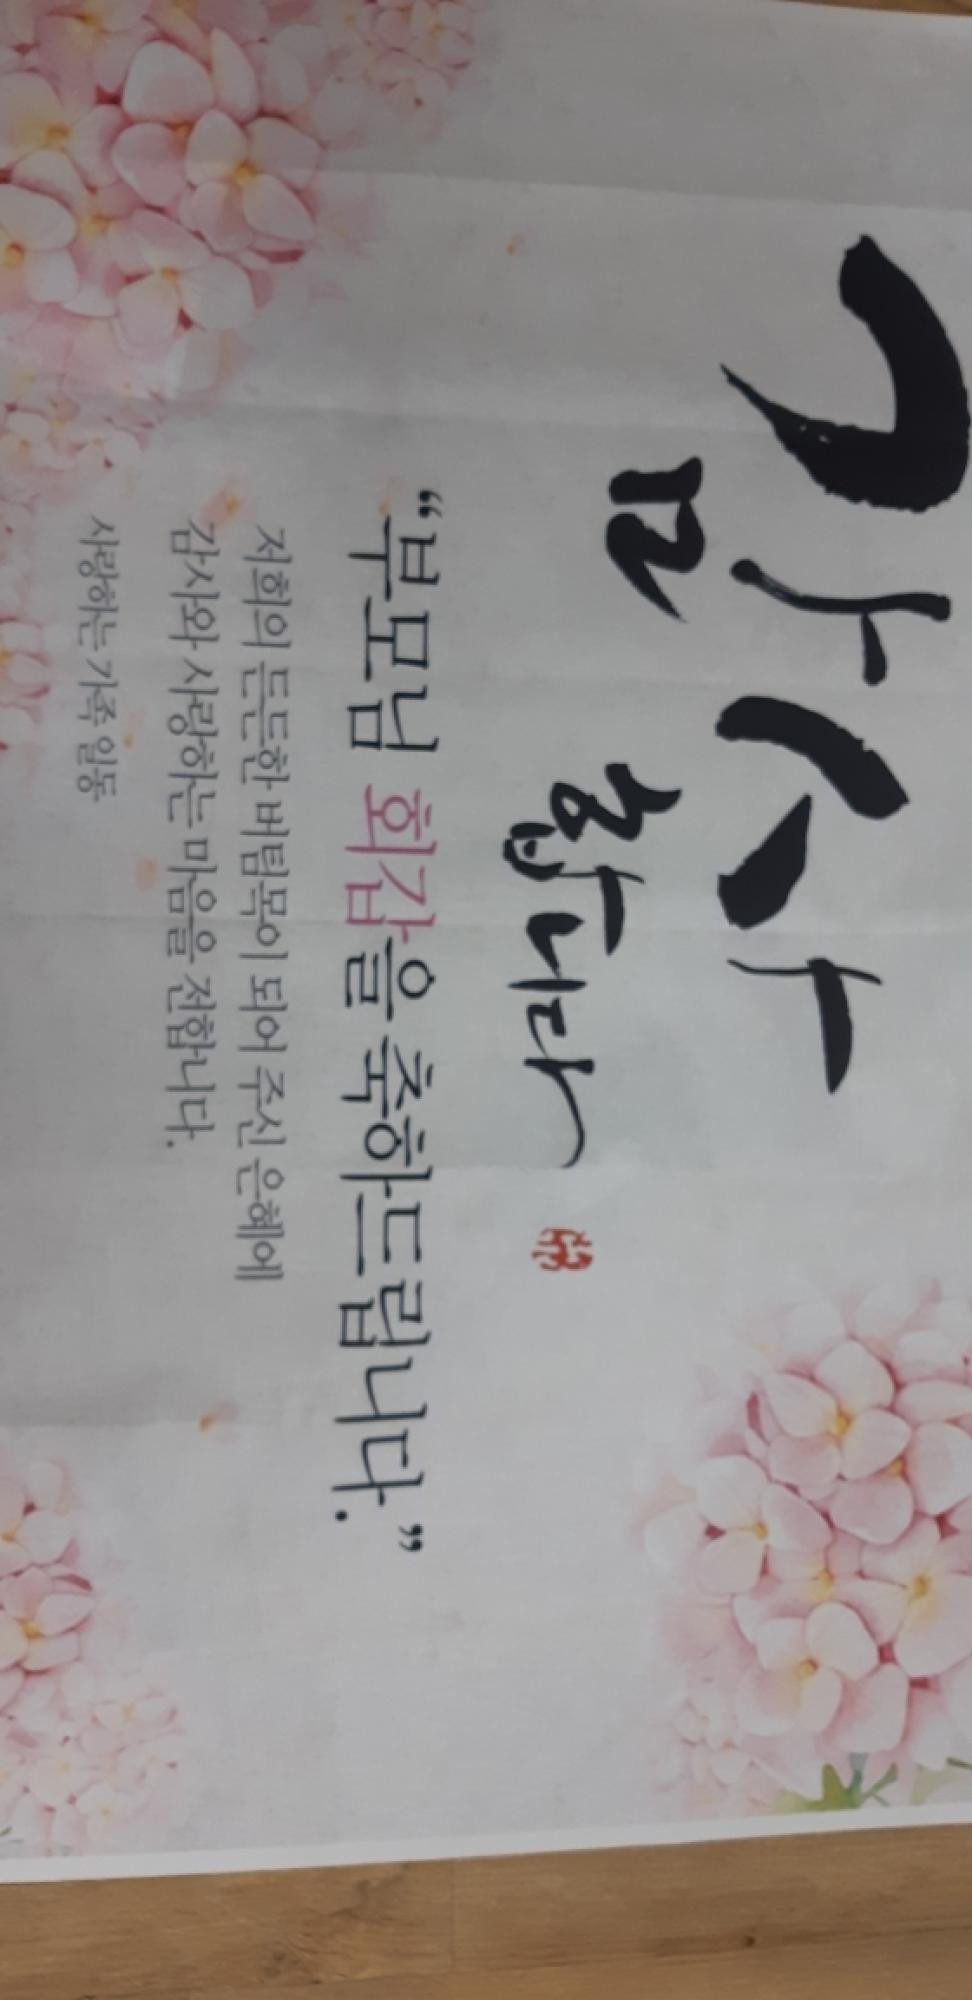 감사
합니다
“부모님 회갑을 축하드립니다.”
저희의 든든한 버팀목이 되어 주신 은혜에
감사와 사랑하는 마음을 전합니다.
사랑하는 가족 일동